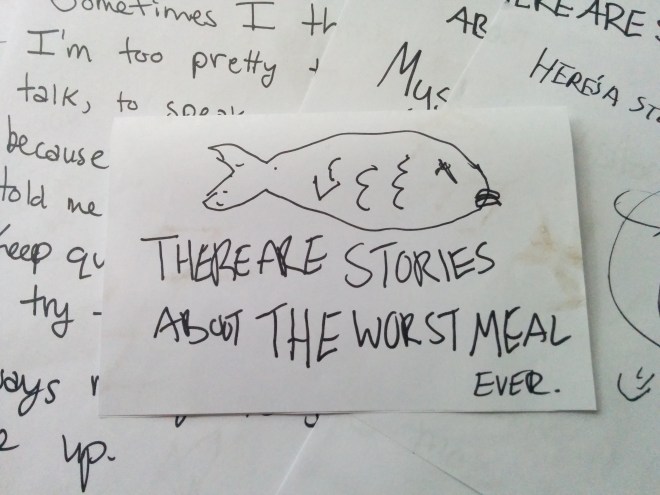 Sometimes I th
I'm too pretty
talk, to speak
because
told me
keep qu
try -
up.
AB
Mys
ERE ARE S
HERE'S A ST
THERE ARE STORIES
ABOUT THE WORST MEAL
EVER.